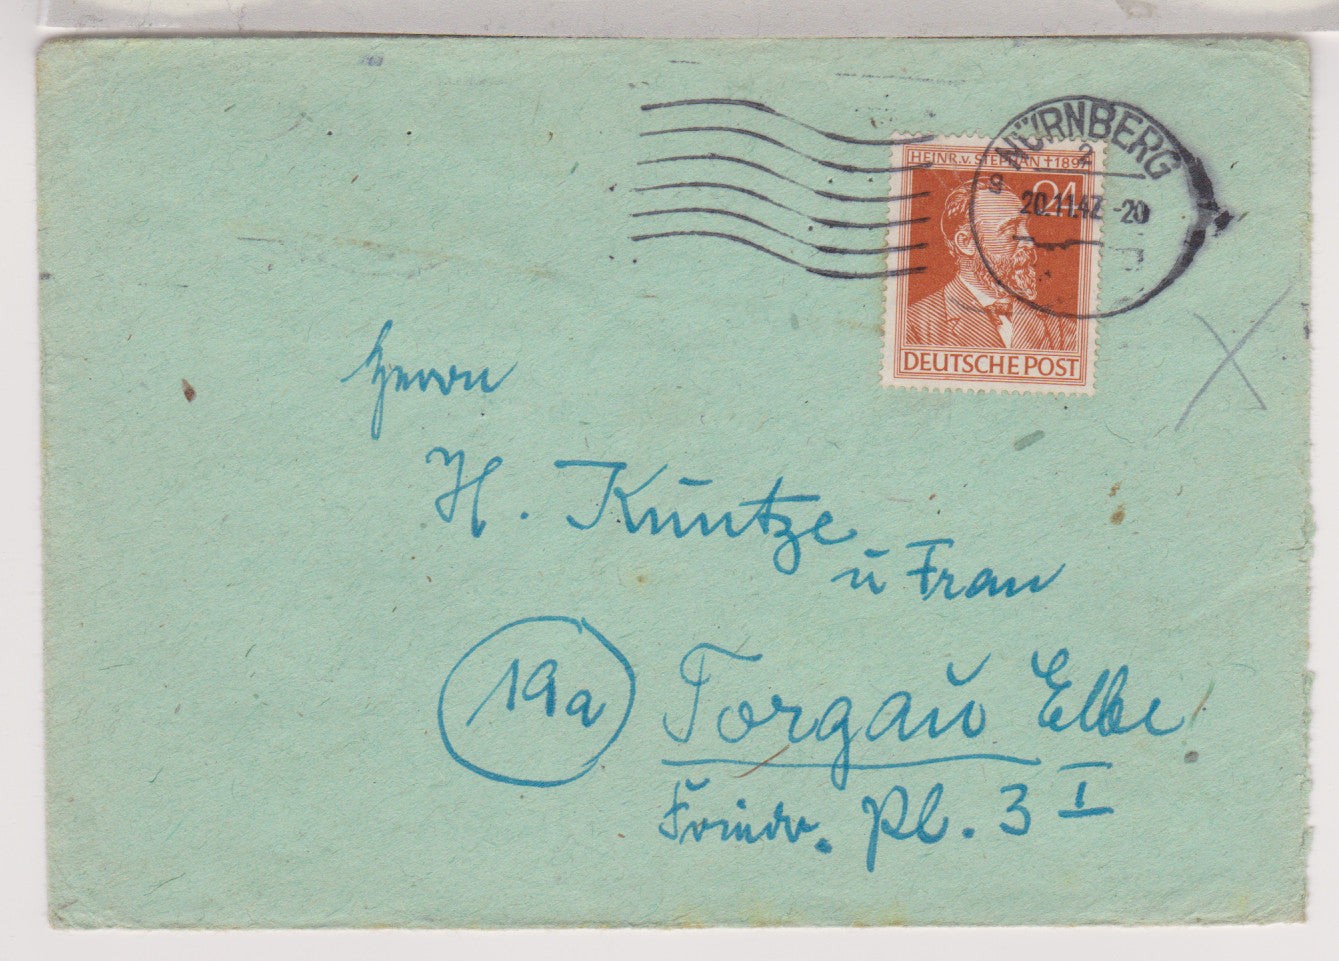 NÜRNBERG
2
g
20.11.47.-20
HEINR.v. STEPHAN †1897
24
DEUTSCHE POST
Herrn
H. Kuntze
u Frau
19a
Torgau Elbe
Friedr. Pl. 3 I